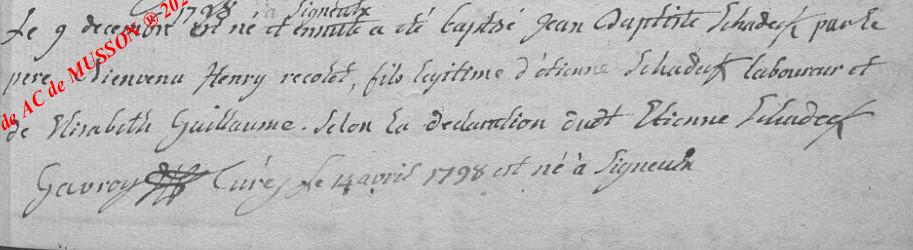 1798 à Signeulx
Le 9 decembre est né et ensuite a été baptisé Jean Baptiste Schadeck par le
pere Bienvenu Henry recolet, fils legitime d'étienne Schadeck laboureur et
de Elisabeth Guillaume. Selon la declaration dudt Etienne Schadeck
Gavroy Curé, Le 14 avril 1798 est né à Signeulx
de AC de MUSSON ® 202